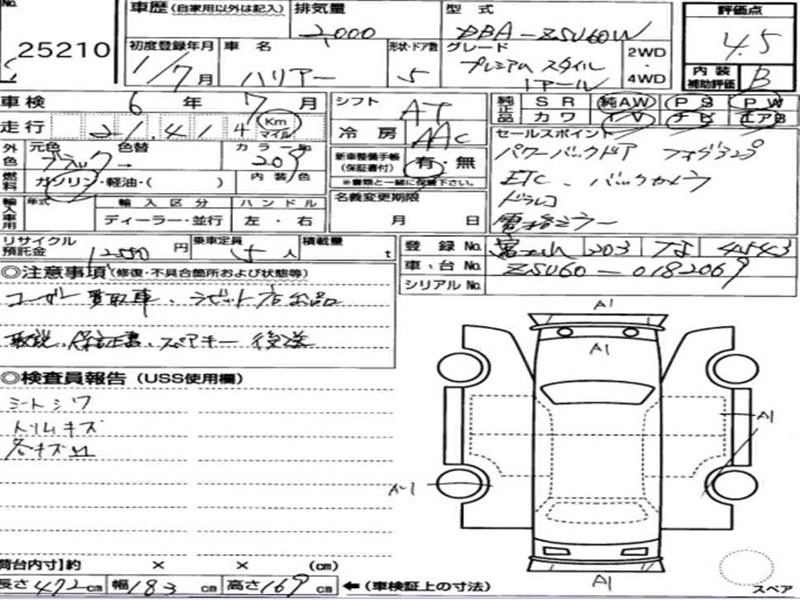 No.
25210
車歴 (自家用以外は記入)
排気量
2,000
型式
DBA-ZSU60W
評価点
4.5
初度登録年月
1/7月
車名
ハリアー
形状・ドア数
5
グレード
プレミアム スタイル
2WD
・
4WD
内装
補助評価
B
車検
6年 7月
シフト
AT
純正品
SR 純AW PS PW
カワ TV ナビ エアB
走行
21,414
Km
マイル
冷房
AAC
セールスポイント
パワーバックドア フォグランプ
ETC、バックカメラ
ドラレコ
電格ミラー
外色
元色
ブラック→
色替
カラーNo
209
新車整備手帳
(保証書付)
有・無
※書類と一緒に保管下さい。
燃料
ガソリン・軽油・( )
内装色
輸入車用
年式
輸入区分
ディーラー・並行
ハンドル
左・右
名義変更期限
月 日
リサイクル
預託金
12590円
乗車定員
5人
積載量
t
登録No.
富士山 203 4543
車台No.
ZSU60-0182069
シリアルNo.
◎注意事項 (修復・不具合箇所および状態等)
ユーザー買取車、ラビット店出品
取説、保証書、スペアキー後送
◎検査員報告 (USS使用欄)
シートシワ
トリムキズ
各キズ凹
A1
A1
A1
A-1
A1
スペア
荷台内寸)約 × × (cm)
長さ472cm 幅183cm 高さ169cm ←(車検証上の寸法)